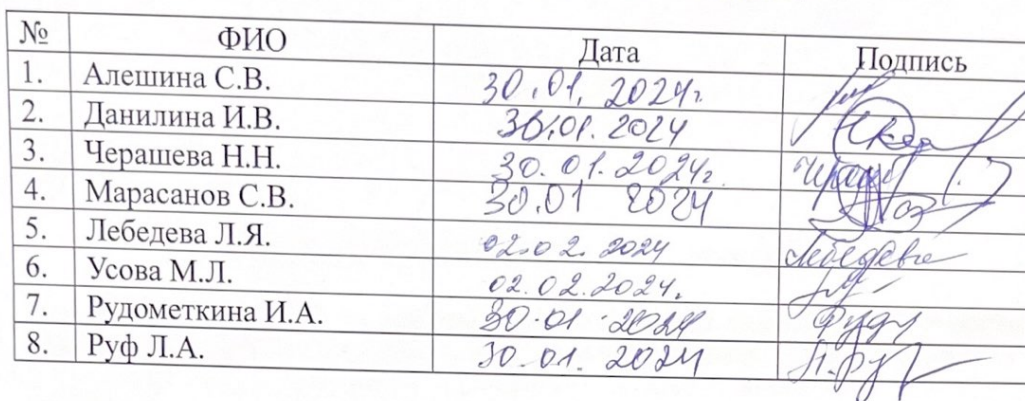 № ФИО Дата Подпись
1. Алешина С.В. 30.01.2024г.
2. Данилина И.В. 30.01.2024
3. Черашева Н.Н. 30.01.2024г.
4. Марасанов С.В. 30.01 2024
5. Лебедева Л.Я. 02.02.2024 Лебедева
6. Усова М.Л. 02.02.2024.
7. Рудометкина И.А. 30.01.2024
8. Руф Л.А. 30.01.2024 Л.Руф